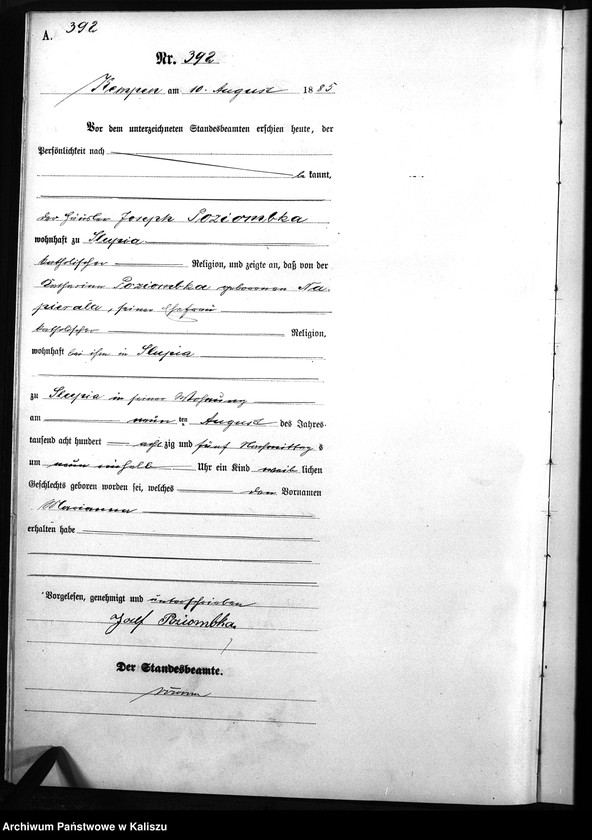 A. 392
Nr. 392
Kempen am 10. August 1885
Vor dem unterzeichneten Standesbeamten erschien heute, der
Persönlichkeit nach
bekannt,
der Häusler Joseph Poziombka
wohnhaft zu Slupia
katholischer Religion, und zeigte an, daß von der
Katharina Poziombka geborenen Na-
pierala, seiner Ehefrau
katholischer Religion,
wohnhaft bei ihm in Slupia
zu Slupia in seiner Wohnung
am neun ten August des Jahres
tausend acht hundert achtzig und fünf Nachmittags
um neun einhalb Uhr ein Kind weiblichen
Geschlechts geboren worden sei, welches den Vornamen
Marianna
erhalten habe
Vorgelesen, genehmigt und unterschrieben
Josef Poziombka
Der Standesbeamte.
Archiwum Państwowe w Kaliszu